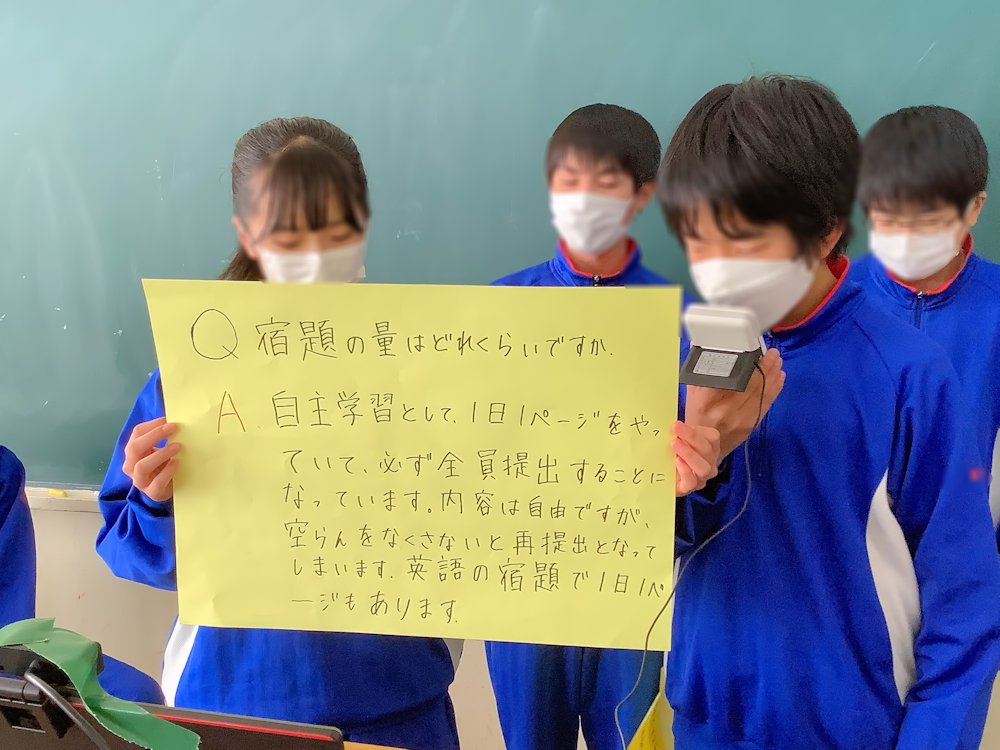 Q 宿題の量はどれくらいですか.
A. 自主学習として、1日1ページをやっ
ていて、必ず全員提出することに
なっています。内容は自由ですが、
空らんをなくさないと再提出となって
しまいます.英語の宿題で1日1ペ
ージもあります.